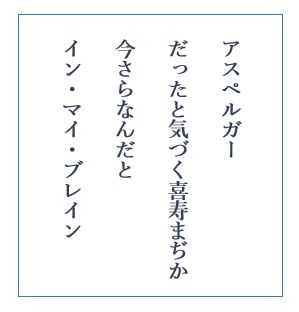 アスペルガー
だったと気づく喜寿まぢか
今さらなんだと
イン・マイ・ブレイン